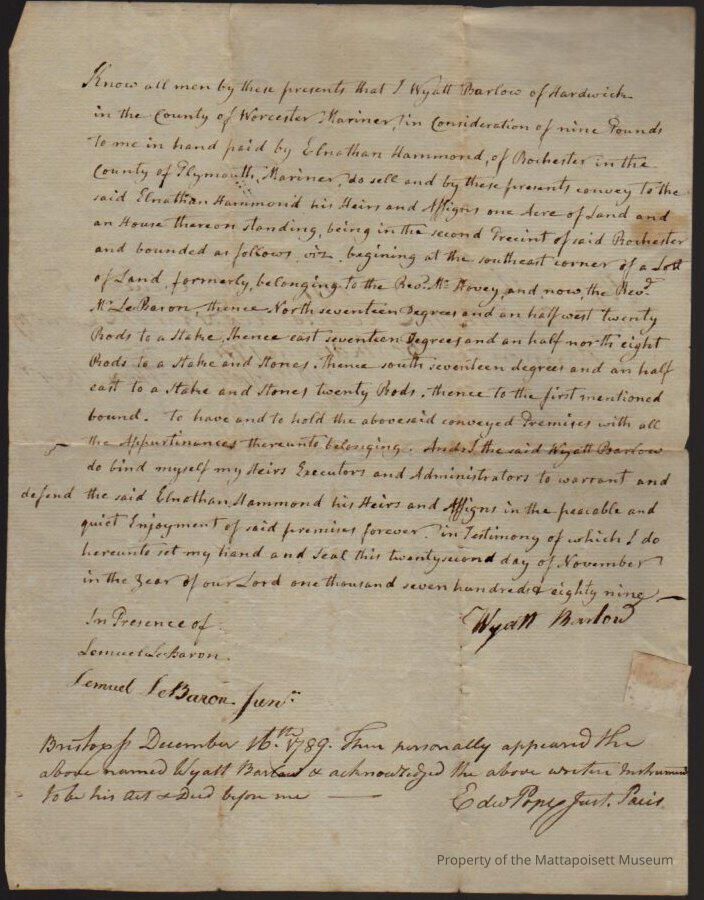 Know all men by these presents that I Wyatt Barlow of Hardwick
in the County of Worcester Mariner, in Consideration of nine Pounds
to me in hand paid by Elnathan Hammond, of Rochester in the
County of Plymouth, Mariner, do sell and by these presents convey to the
said Elnathan Hammond his Heirs and Assigns one Acre of Land and
an House thereon standing, being in the second Precint of said Rochester
and bounded as follows, viz. begining at the southeast corner of a Lott
of Land, formerly, belonging to the Revd. Mr. Hovey, and now, the Revd.
Mr. LeBaron, thence North seventeen Degrees and an half west twenty
Rods to a Stake, thence east seventeen Degrees and an half north eight
Rods to a Stake and Stones. thence south seventeen degrees and an half
east to a Stake and Stones twenty Rods. thence to the first mentioned
bound. to have and to hold the abovesaid conveyed Premises with all
the Appurtinances thereunto belonging. And I the said Wyatt Barlow
do bind myself my Heirs Executors and Administrators to warrant and
defend the said Elnathan Hammond his Heirs and Assigns in the peacable and
quiet Enjoyment of said premises forever. in Testimony of which I do
hereunto set my hand and Seal this twentysecond day of November
in the Year of our Lord one thousand seven hundred & eighty nine
Wyatt Barlow
In Presence of
Lemuel LeBaron.
Lemuel LeBaron Junr.
Bristol ss December 16th. 1789. Then personally appeared the
above named Wyatt Barlow & acknowledged the above written Instrument
to be his Act & Deed before me
Edw Pope Just. Pacis
Property of the Mattapoisett Museum